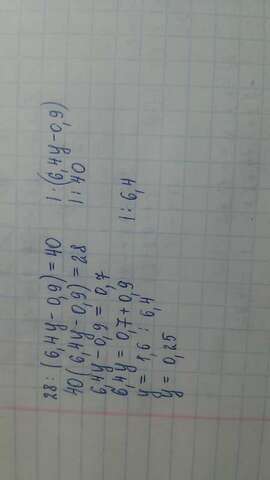 28 : (6,4y - 0,9) = 40    1 : (6,4y - 0,9)
40 (6,4y - 0,9) = 28    1 : 40
6,4y - 0,9 = 0,7
6,4y = 0,7 + 0,9    1 : 6,4
y = 1,6 : 6,4
y = 0,25